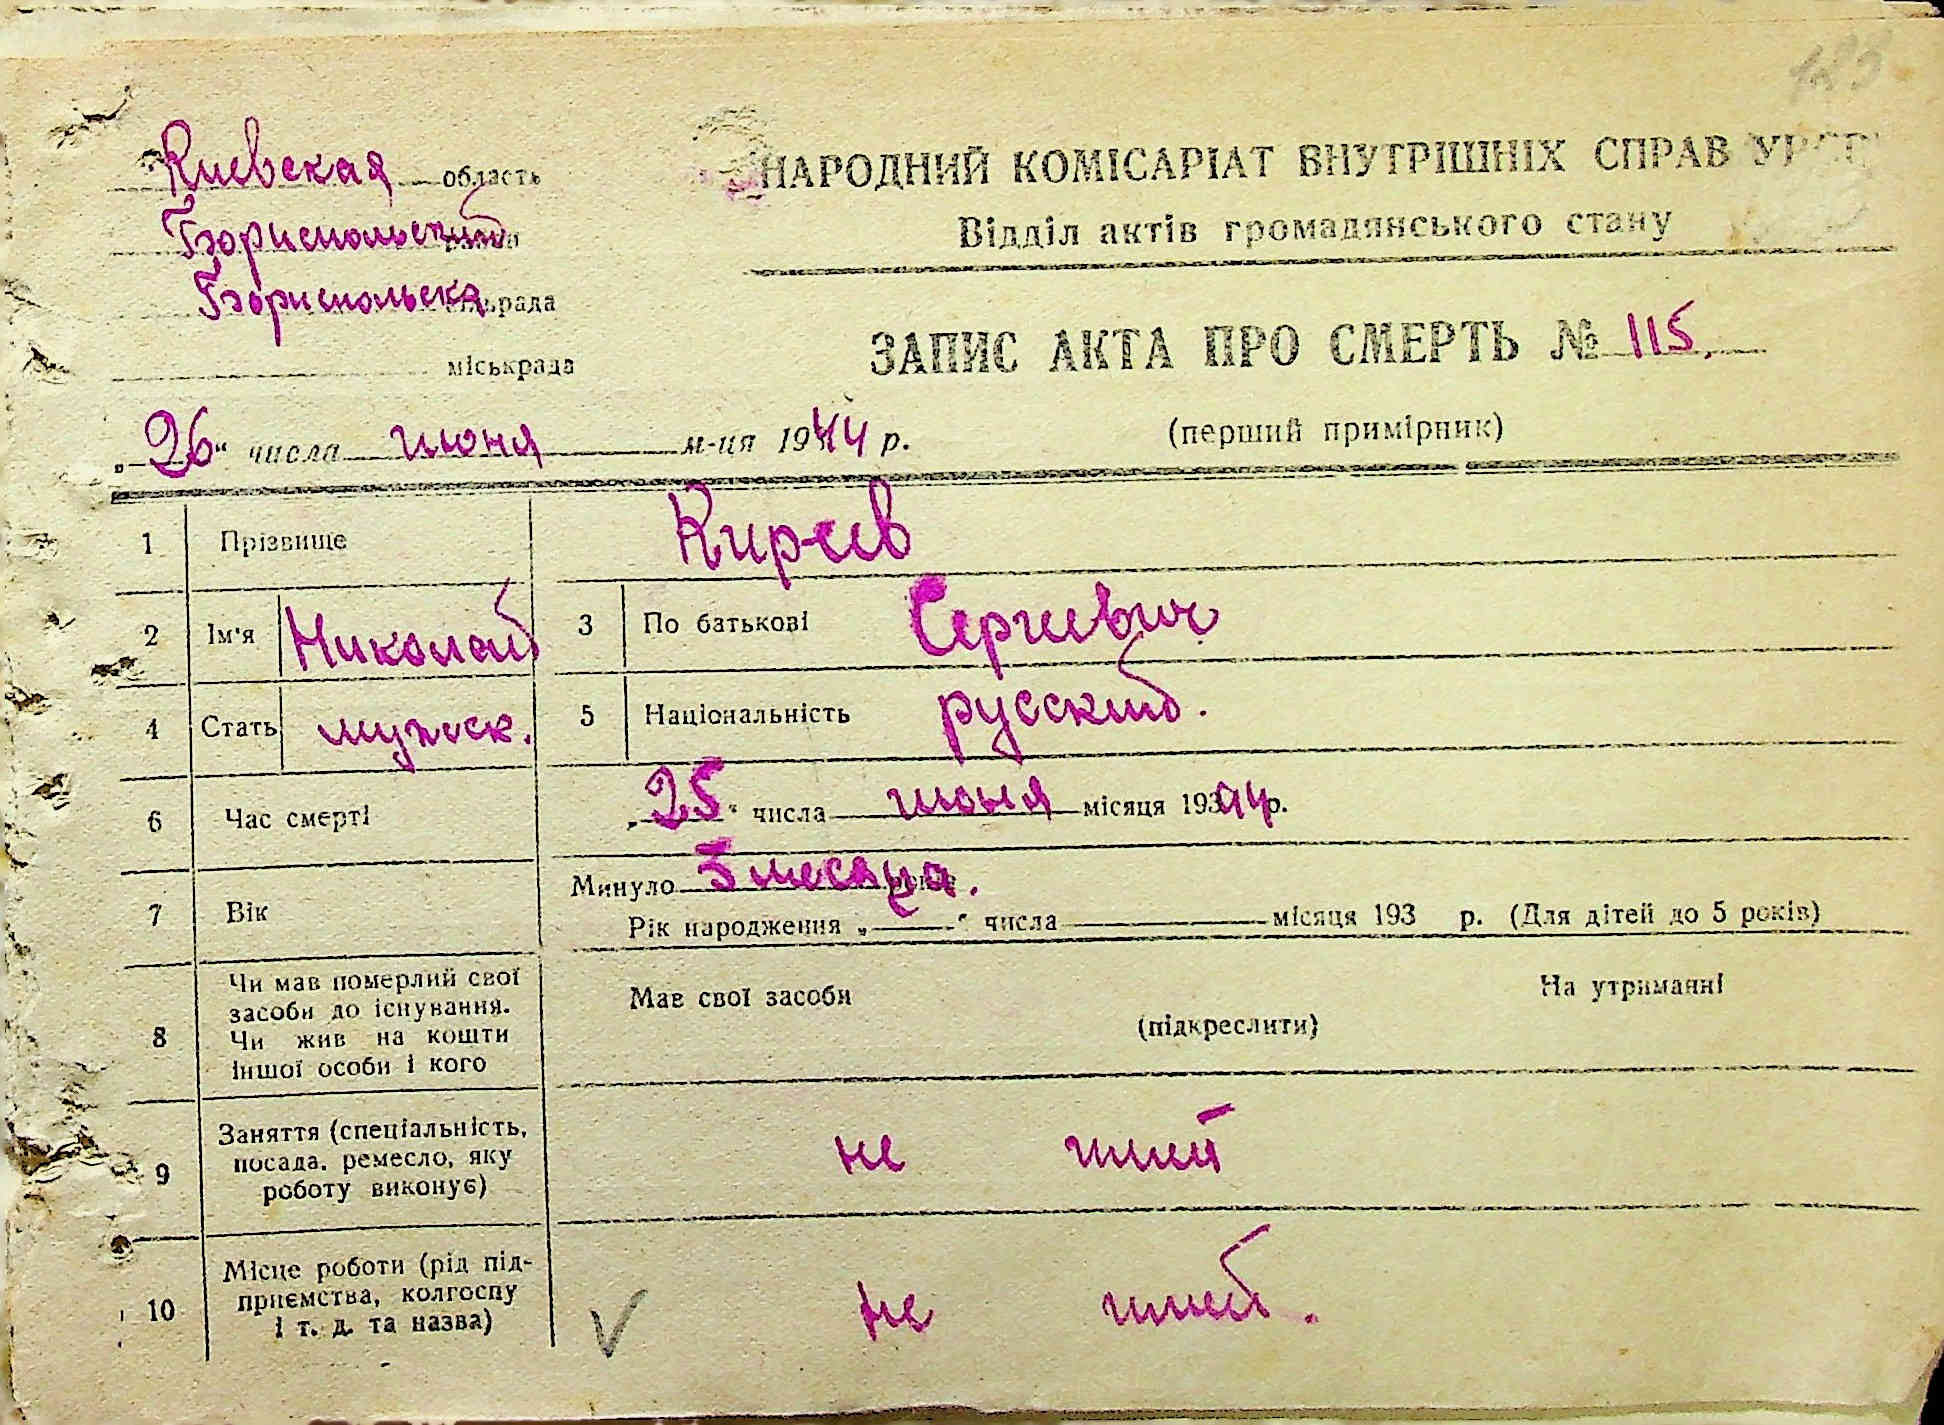 Киевская область
Бориспольский
Бориспольска сільрада
міськрада
НАРОДНИЙ КОМІСАРІАТ ВНУТРІШНІХ СПРАВ УРСР
Відділ актів громадянського стану
ЗАПИС АКТА ПРО СМЕРТЬ № 115.
(перший примірник)
„26“ числа июня м-ця 1944 р.
1 Прізвище Киреев
2 Ім'я Николай 3 По батькові Сергиевич
4 Стать мужеск. 5 Національність русский.
6 Час смерті „25“ числа июня місяця 19344 р.
7 Вік Минуло 3 месяца.
Рік народження „ “ числа місяця 193 р. (Для дітей до 5 років)
8 Чи мав померлий свої
засоби до існування.
Чи жив на кошти
іншої особи і кого
Має свої засоби
(підкреслити)
На утриманні
9 Заняття (спеціальність,
посада, ремесло, яку
роботу виконує)
не
10 Місце роботи (рід під-
приємства, колгоспу
і т. д. та назва)
не